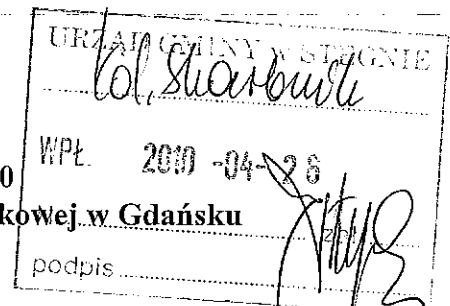 URZĄD GMINY W STEGNIE
Kol. Skarbnik
WPŁ. 2010 -04- 26
0
kowej w Gdańsku
podpis